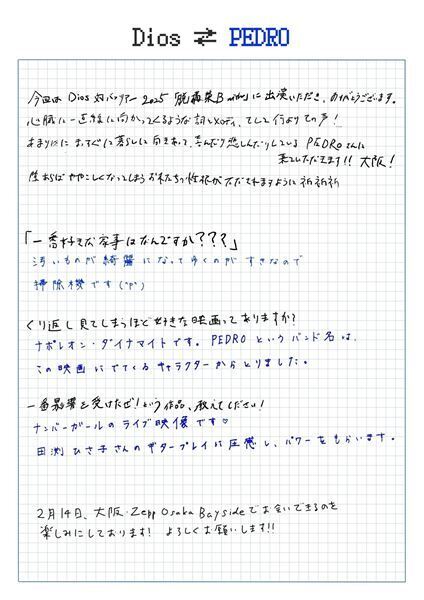 Dios ⇄ PEDRO
今回は Dios 対バンツアー 2025「脱轟菜B」に出演いただき、ありがとうございます。
心臓に一直線に向かってくるような詞とメロディ、そして何よりその声!
あまりにまっすぐに暮らしに向きあって、喜んだり悲しんだりしてる PEDROさんに
来ていただきます!! 大阪!
ややこしくなってしまうおれたちの性根がただされますように祈祈祈
「一番好きな家事はなんですか???」
汚いものが綺麗になってゆくのがすきなので
掃除機です
くり返し見てしまうほど好きな映画ってありますか?
ナポレオン・ダイナマイトです。PEDROというバンド名は、
この映画にでてくるキャラクターからとりました。
一番影響を受けたぜ!という作品、教えてください!
ナンバーガールのライブ映像です♡
田渕ひさ子さんのギタープレイに圧感し、パワーをもらいます。
2月14日、大阪・Zepp Osaka Baysideでお会いできるのを
楽しみにしております! よろしくお願いします!!